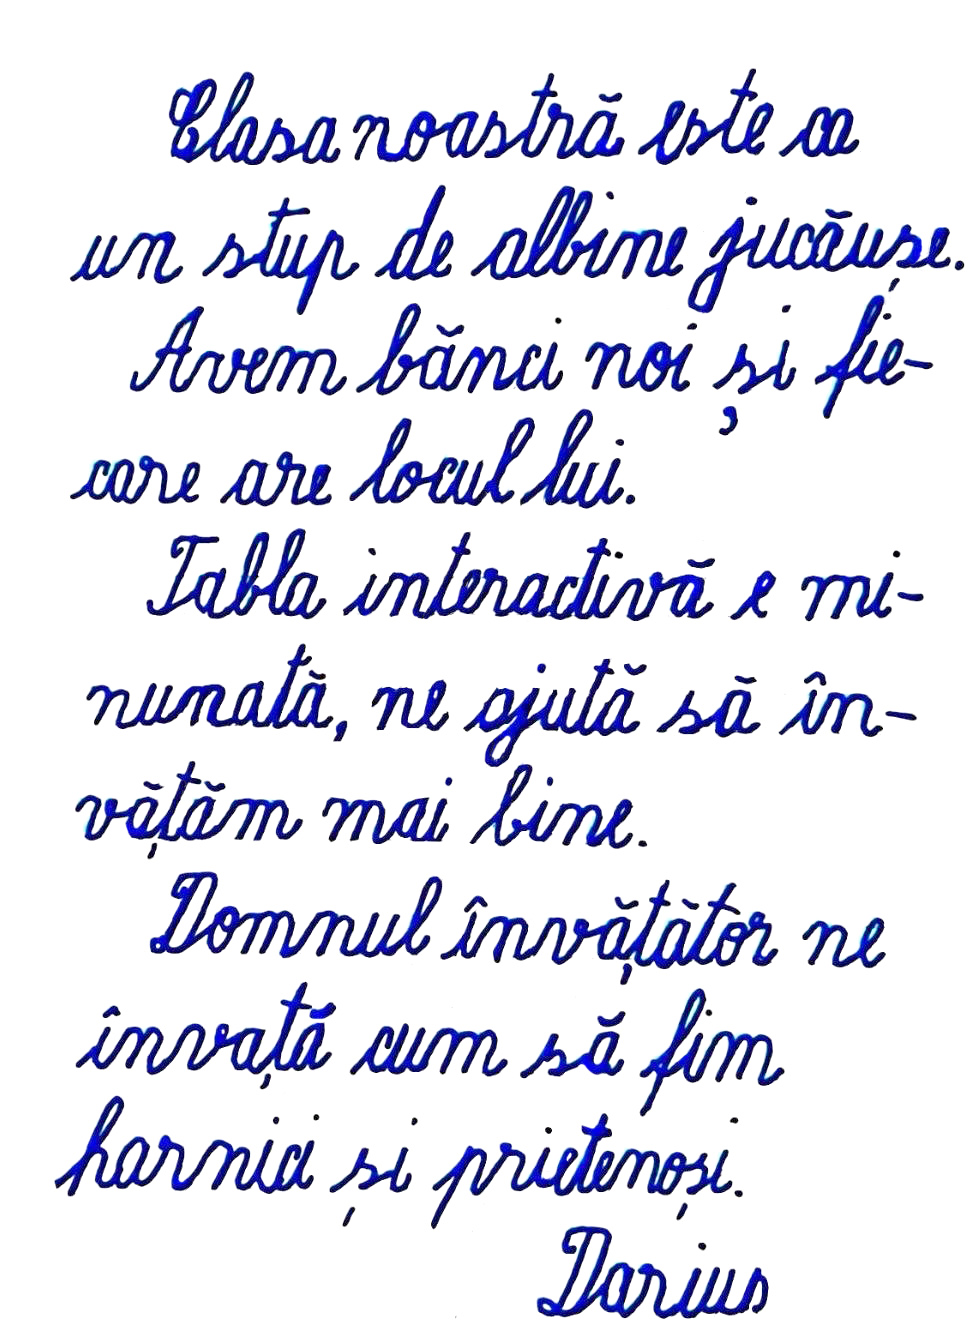 Clasa noastră este ca
un stup de albine jucăușe.
Avem bănci noi și fie-
care are locul lui.
Tabla interactivă e mi-
nunată, ne ajută să în-
vățăm mai bine.
Domnul învățător ne
învață cum să fim
harnici și prietenoși.
Darius